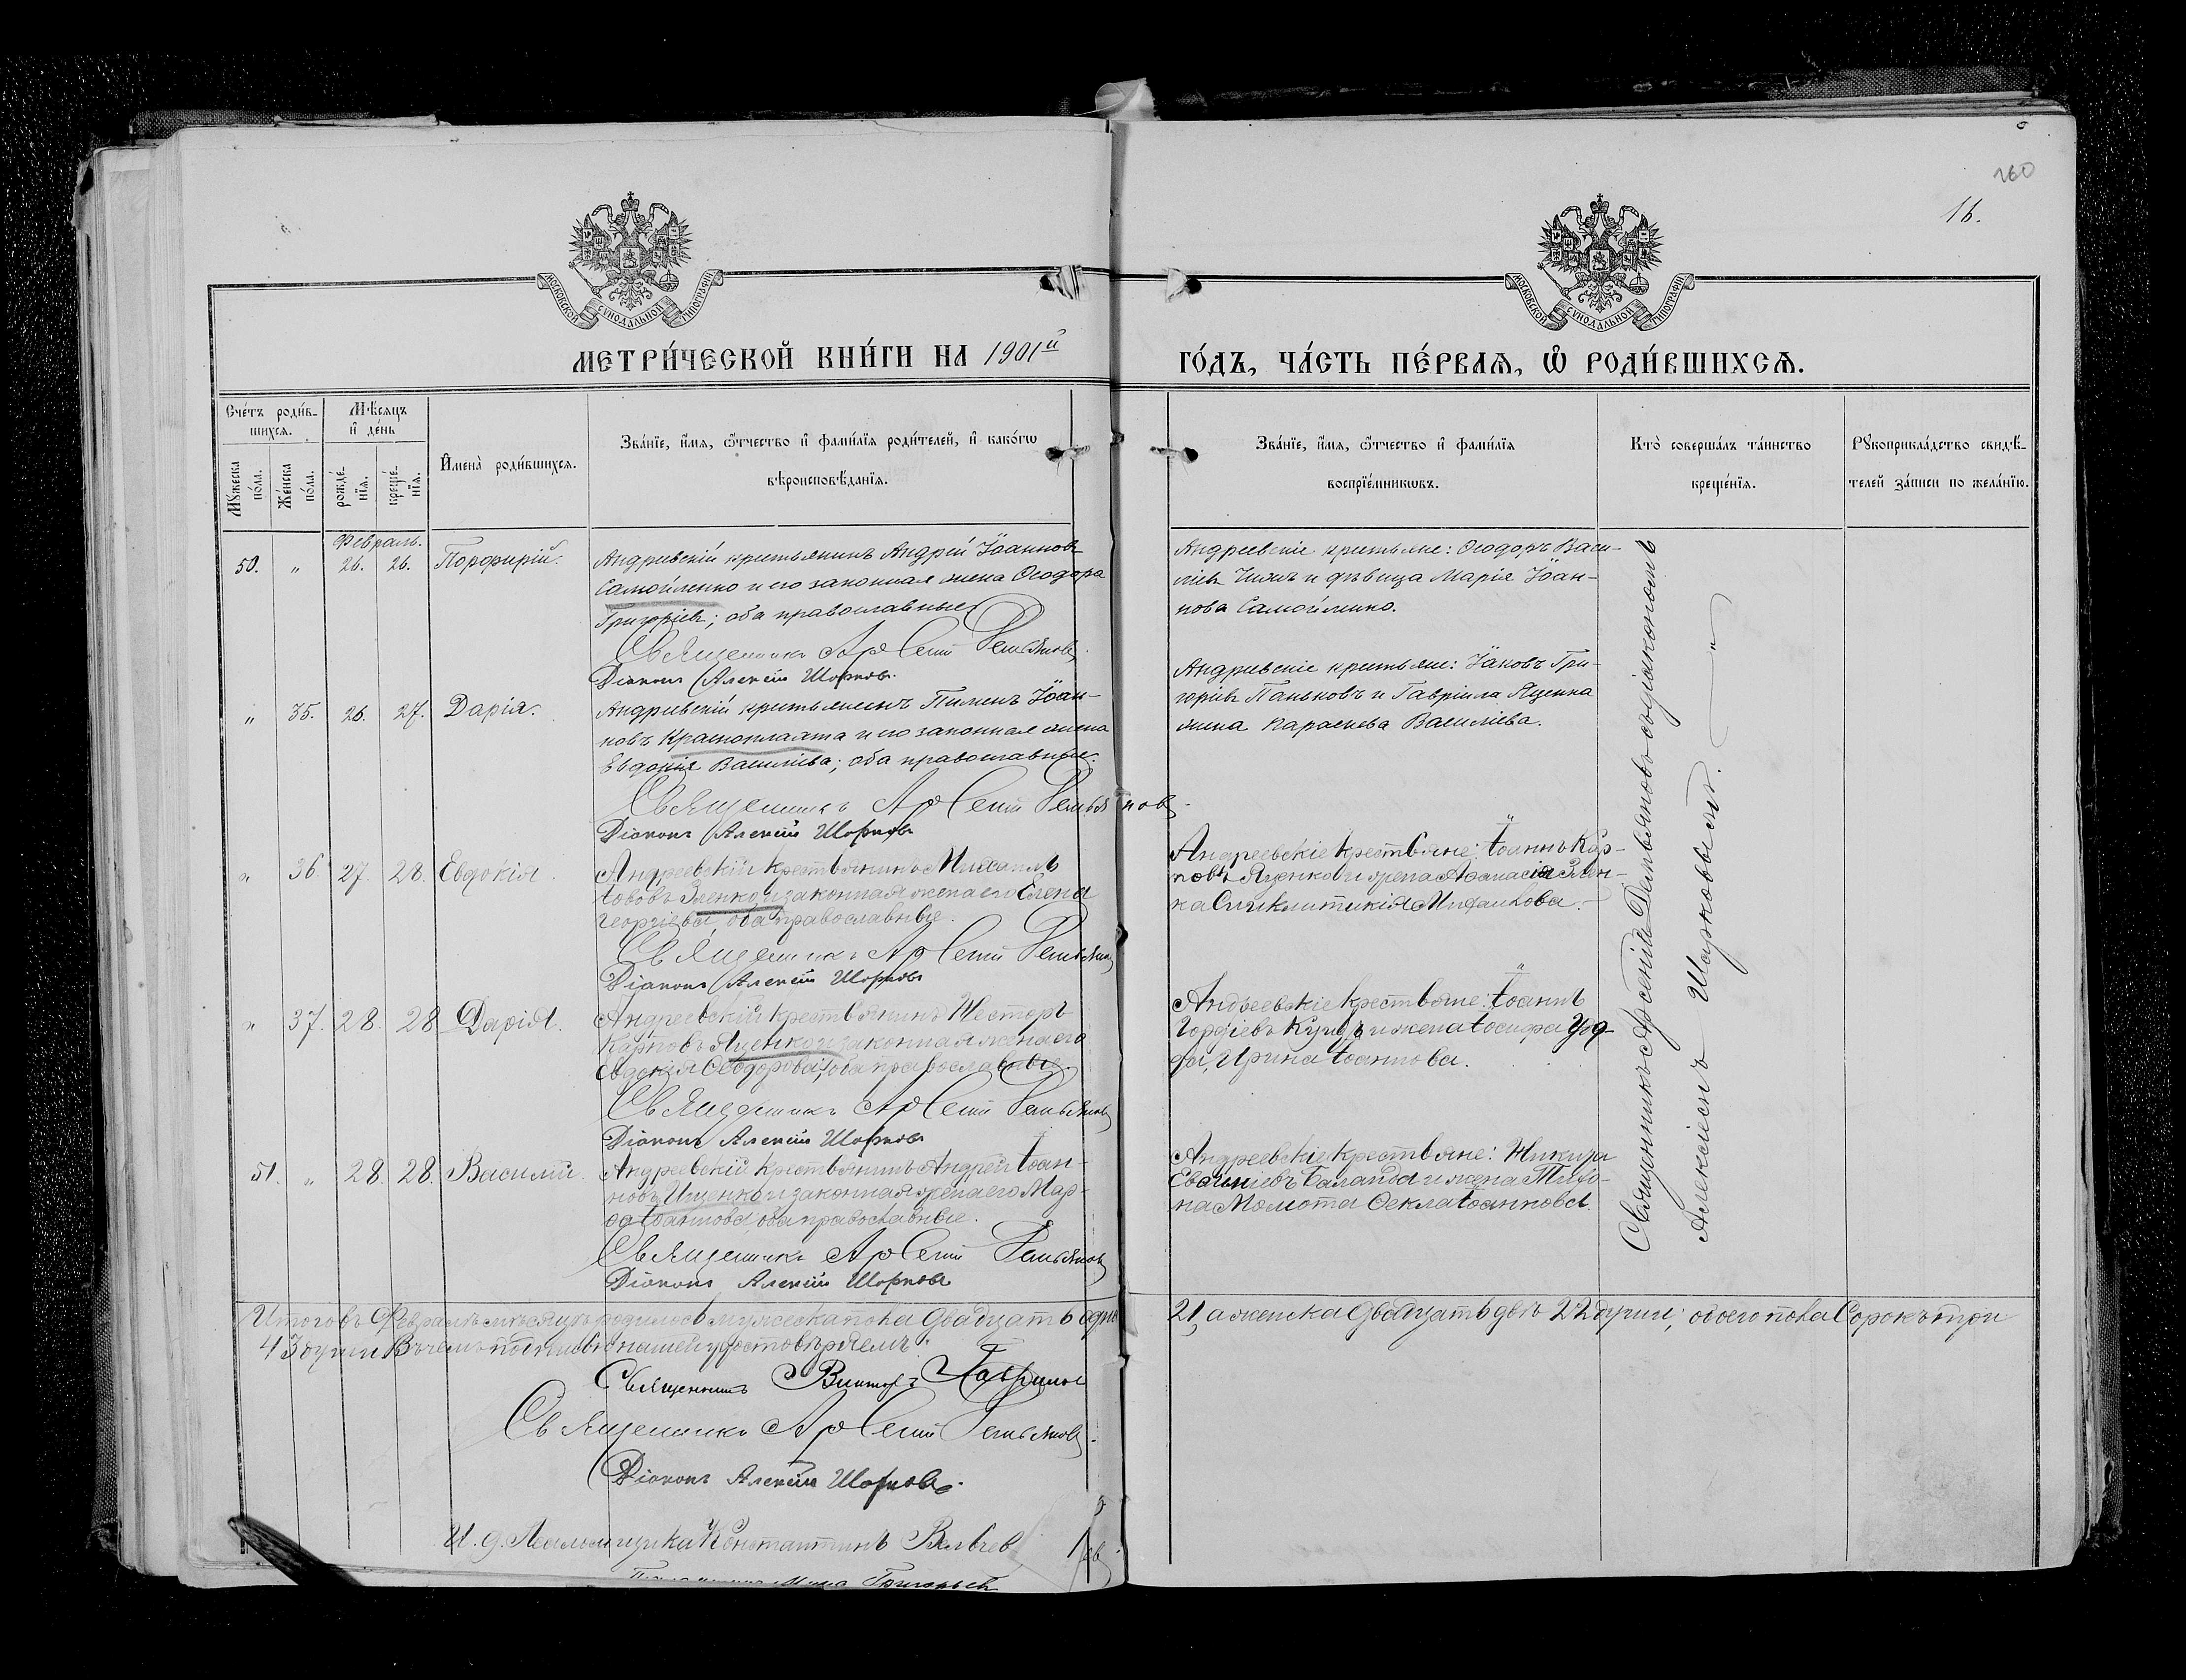 160
16.
МОСКОВСКОЙ СѴНОДАЛЬНОЙ ТИПОГРАФІИ
МОСКОВСКОЙ СѴНОДАЛЬНОЙ ТИПОГРАФІИ
МЕТРИ́ЧЕСКОЙ КНИ́ГИ НА 1901й
ГО́ДЪ, ЧА́СТЬ ПЕ́РВАѦ, Ѽ РОДИ́ВШИХСѦ.
Сче́тъ роди́в-
шихсѧ.
Мꙋ́жеска по́ла.
Же́нска по́ла.
Мѣ́сѧцъ
и҆ де́нь
рожде́-
нїѧ.
креще́-
нїѧ.
И҆мена̀ роди́вшихсѧ.
Зва́нїе, и҆́мѧ, ѻ҆́тчество и҆ фами́лїѧ роди́телей, и҆ како́гѡ
вѣроисповѣ́данїѧ.
Зва́нїе, и҆́мѧ, ѻ҆́тчество и҆ фами́лїѧ
воспрїе́мникѡвъ.
Кто̀ соверша́лъ та́инство
креще́нїѧ.
Рꙋкоприкла́дство свидѣ́-
телей за́писи по жела́нїю.
Февраль.
50. " 26. 26. Порфирій.
Андреевскій крестьянинъ Андрей Іоанновъ
Самойленко и его законная жена Ѳеодора
Григоріев; оба православные
Священникъ Арсеній Демьяновъ
Діаконъ Алексій Шорковъ
Андреевскіе крестьяне: Ѳеодоръ Васи-
ліев Чижъ и дѣвица Марія Іоан-
нова Самойленко.
" 35. 26. 27. Дарія.
Андреевскій крестьянинъ Пименъ Іоан-
новъ Красноплахта и его законная жена
Евдокія Василіева; оба православные.
Священникъ Арсеній Демьяновъ
Діаконъ Алексій Шорковъ
Андреевскіе крестьяне: Іаковъ Гри-
горіев Паньковъ и Гавріила Яценка
жена Параскева Василіева.
" 36 27. 28. Евдокія.
Андреевскій крестьянинъ Михаилъ
Іововъ Зленко и законная жена его Елена
Георгіева, оба православные.
Священникъ Арсеній Демьяновъ
Діаконъ Алексій Шорковъ
Андреевскіе крестьяне: Іоаннъ Кар-
повъ Яценко и жена Аѳанасія Злен-
ка Синклитикія Михаилова.
" 37. 28. 28 Дарія.
Андреевскій крестьянинъ Несторъ
Карповъ Яценко и законная жена его
Евдокія Ѳеодорова, оба православные.
Священникъ Арсеній Демьяновъ
Діаконъ Алексій Шорковъ
Андреевскіе крестьяне: Іоаннъ
Гордіевъ и жена Іосифа
Ирина Іоаннова.
51. " 28. 28. Василій.
Андреевскій крестьянинъ Андрей Іоан-
новъ Ищенко и законная жена его Мар-
ѳа Іоаннова, оба православные.
Священникъ Арсеній Демьяновъ
Діаконъ Алексій Шорковъ
Андреевскіе крестьяне: Никита
Баланда и жена Тихо-
на Момота Ѳекла Іоаннова.
Священникъ Арсеній Демьяновъ съ діакономъ
Алексіемъ Шорковымъ. "
Итого въ Февралѣ мѣсяцѣ родилось мужеска пола двадцать одна
21, а женска двадцать двѣ 22 души; обоего пола Сорокъ три
43 души. Въ чемъ подписью нашей удостовѣряемъ:
Священникъ Викторъ
Священникъ Арсеній Демьяновъ
Діаконъ Алексій Шорковъ.
И. д. Псаломщика Константинъ
Григорьев